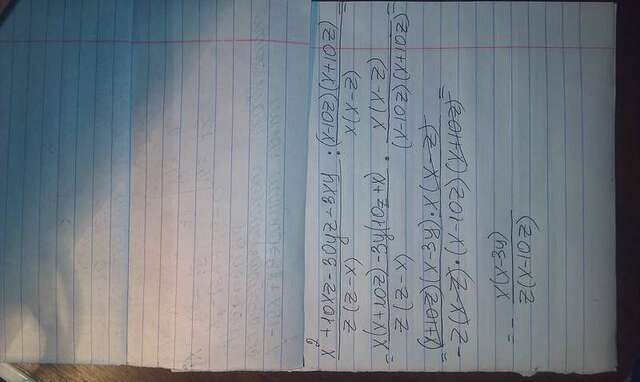 x² + 10xz - 30yz - 3xy / z(z-x) : (x-10z)(x+10z) / x(x-z) =
= x(x+10z) - 3y(10z+x) / z(z-x) · x(x-z) / (x-10z)(x+10z) =
= (x+10z)(x-3y) · x(x-z) / -z(x-z) · (x-10z)(x+10z) =
= - x(x-3y) / z(x-10z)